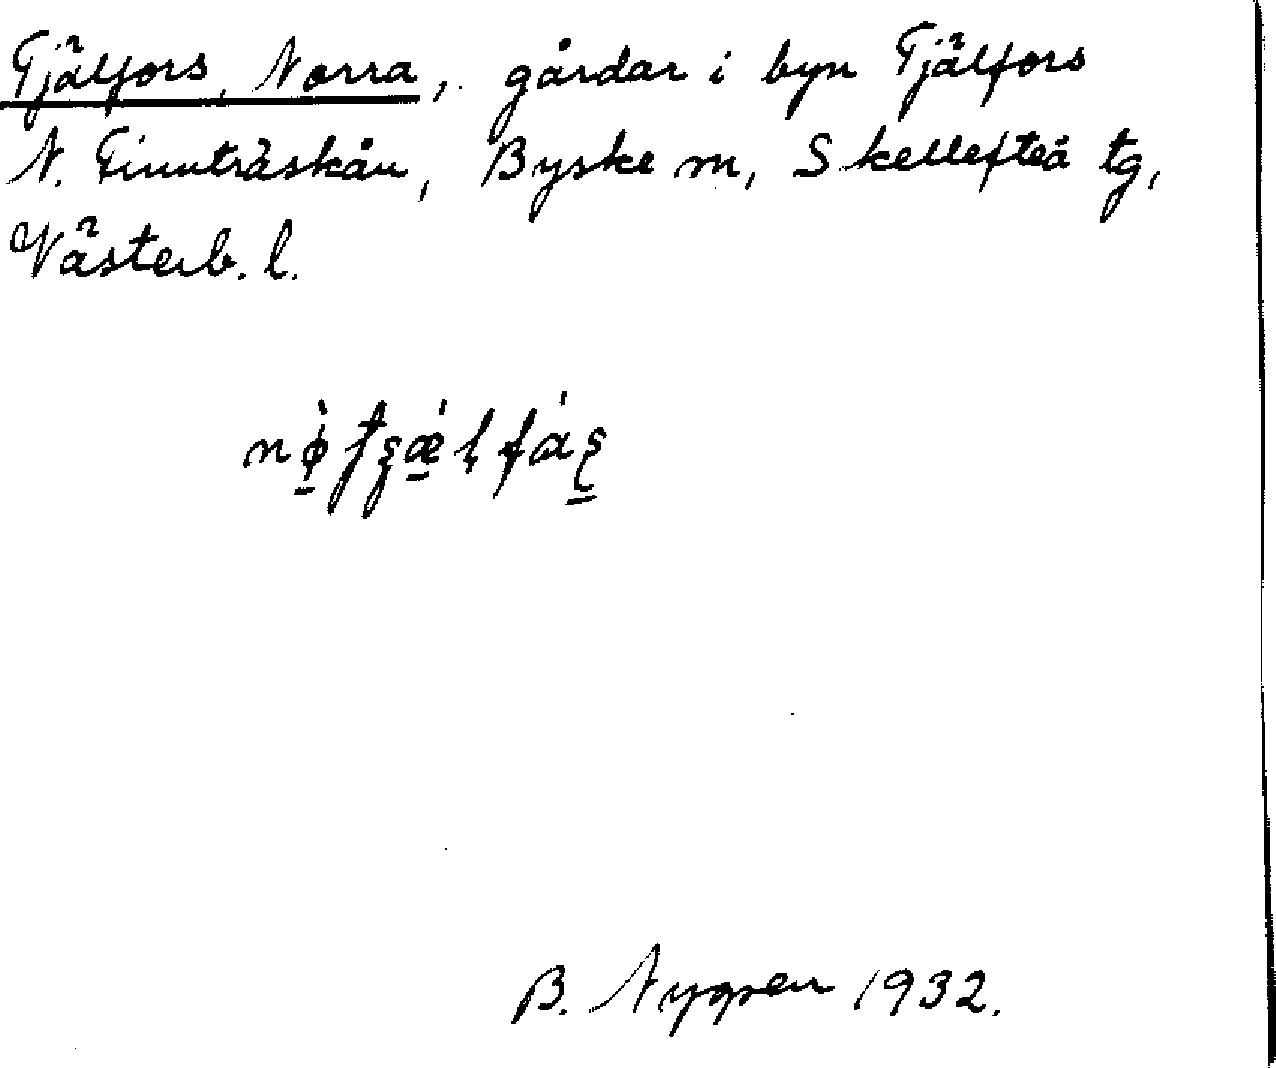 Tjälfors, Norra, gårdar i byn Tjälfors
N. Finnträskån, Byske m, Skellefteå tg,
Västerb. l.
B. Nygren 1932.